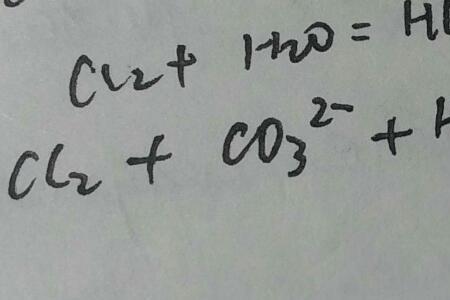 Cl₂ + H₂O = H
Cl₂ + CO₃²⁻ + H